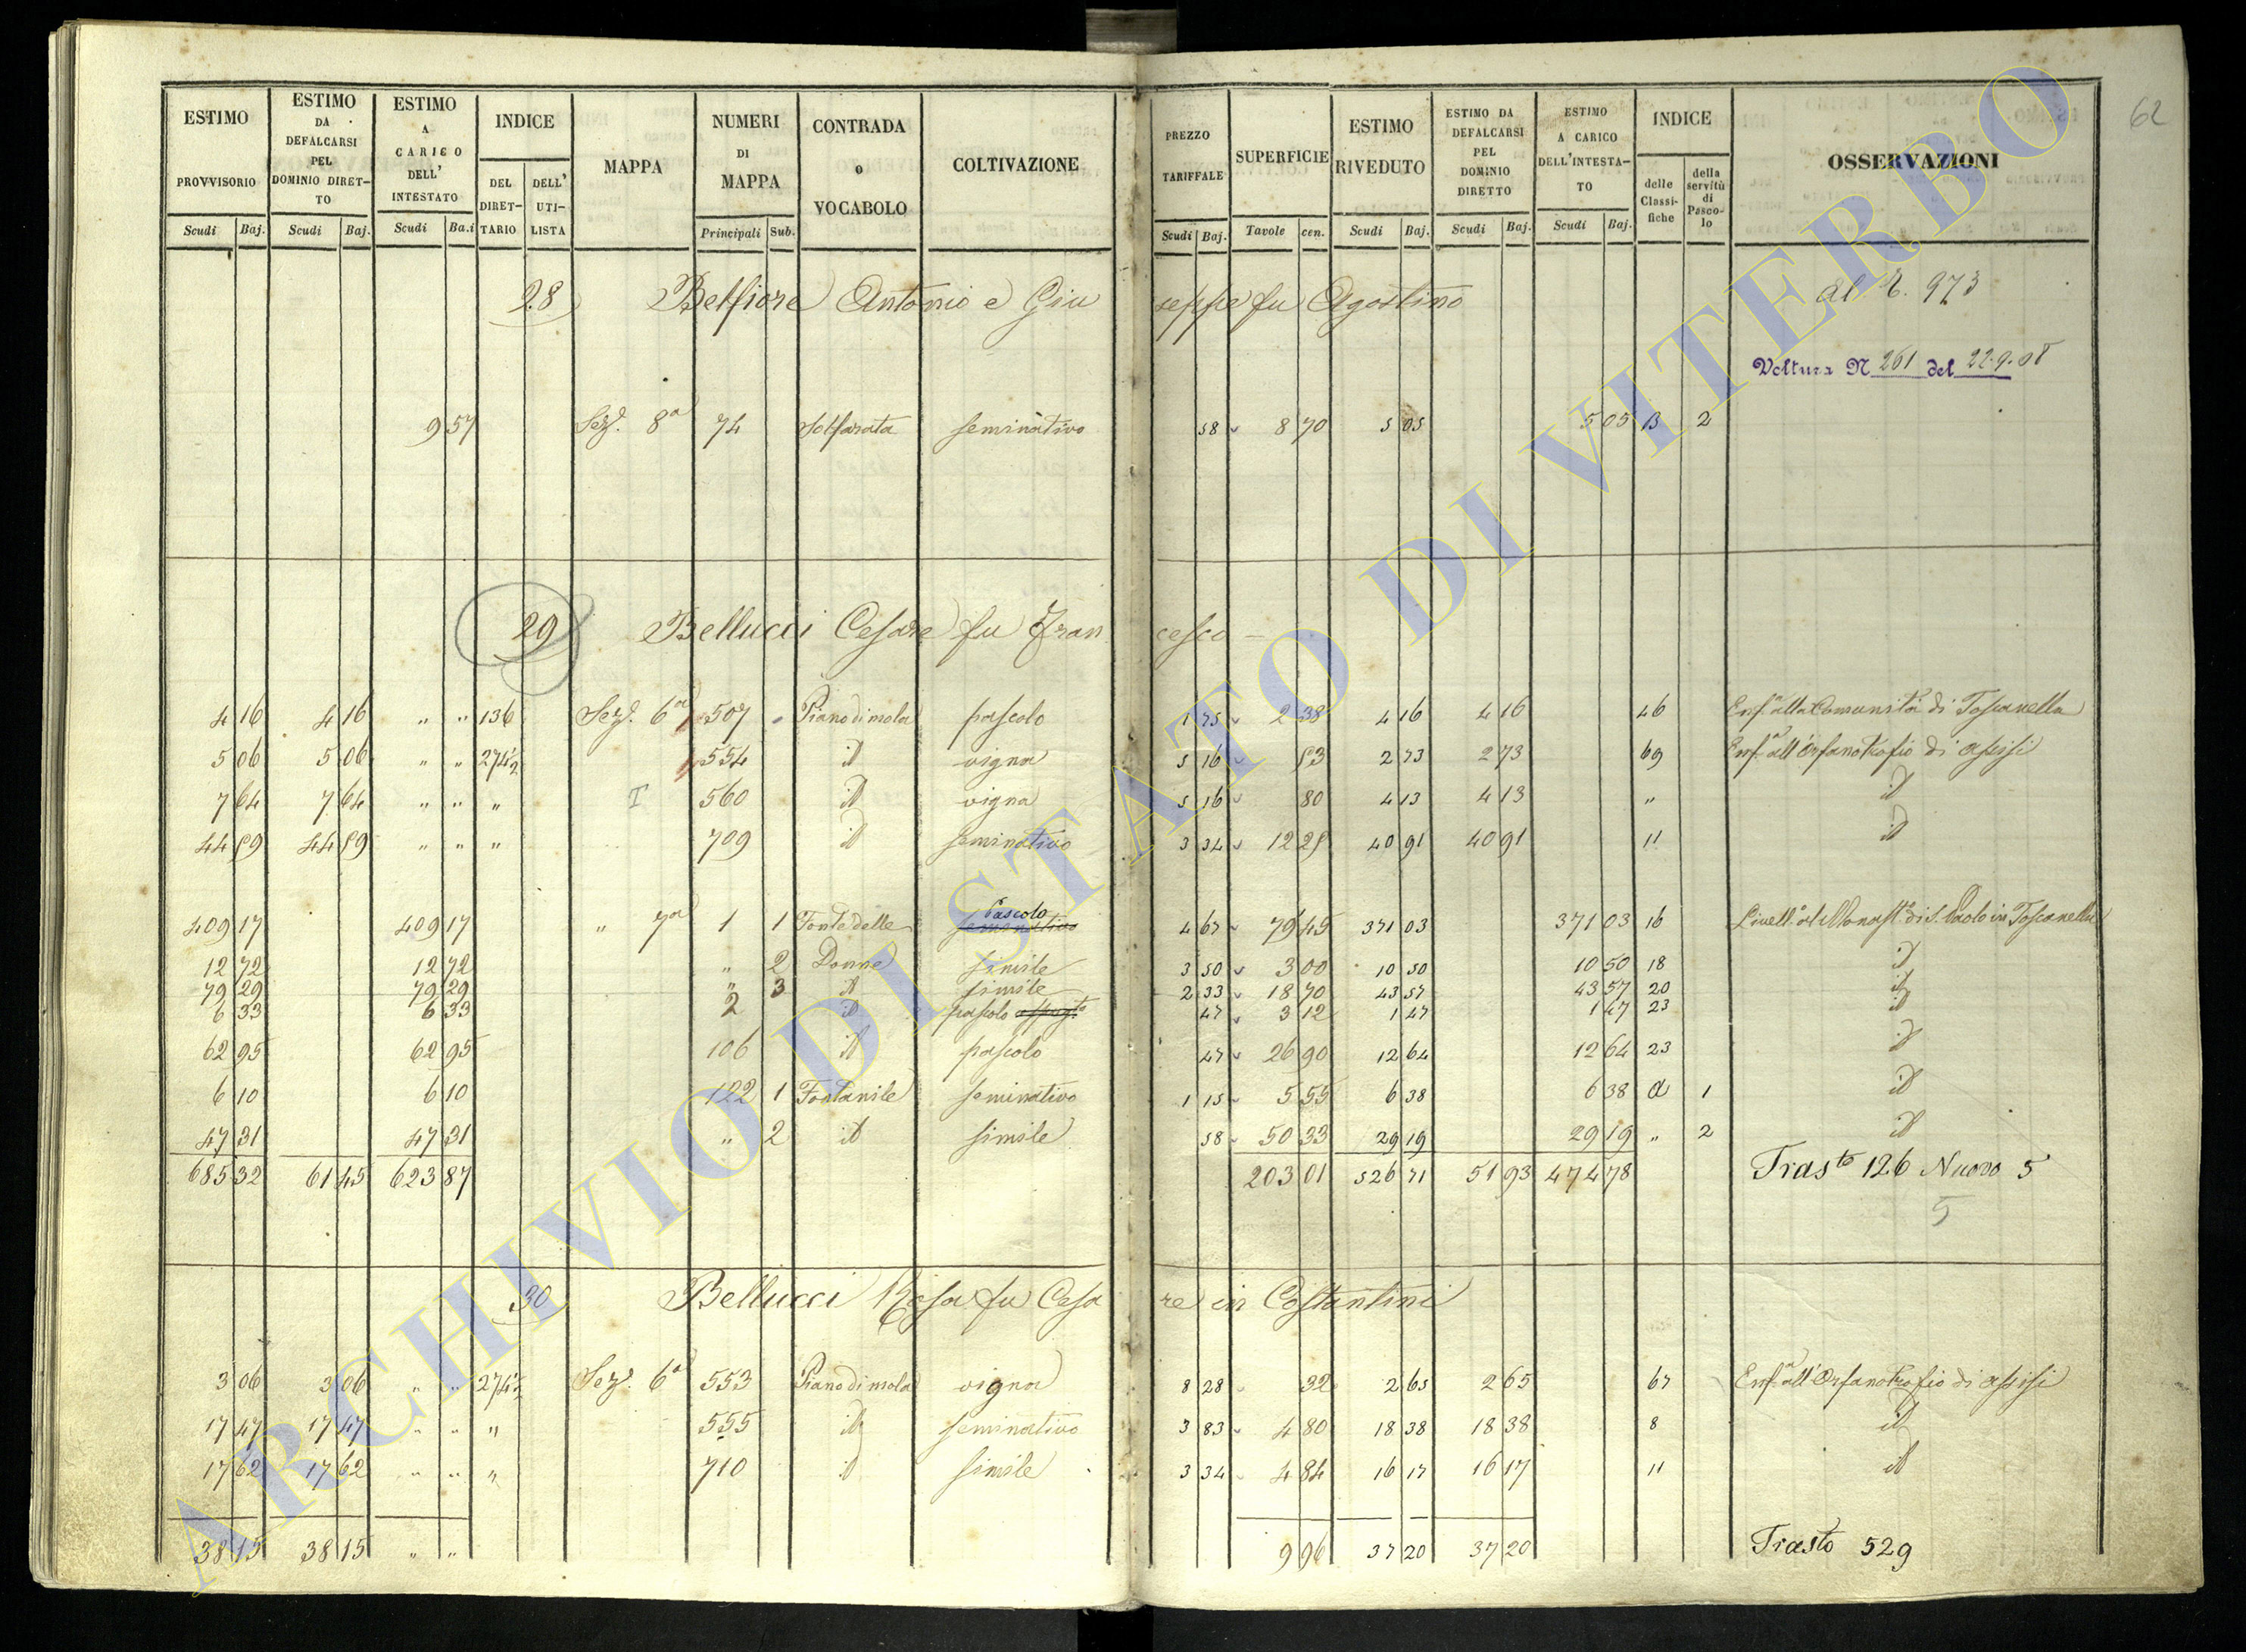 62
ESTIMO PROVVISORIO Scudi Baj.
ESTIMO DA DEFALCARSI PEL DOMINIO DIRETTO Scudi Baj.
ESTIMO A CARICO DELL' INTESTATO Scudi Ba.i
INDICE DEL DIRETTARIO DELL' UTILISTA
MAPPA
NUMERI DI MAPPA Principali Sub.
CONTRADA o VOCABOLO
COLTIVAZIONE
PREZZO TARIFFALE Scudi Baj.
SUPERFICIE Tavole cen.
ESTIMO RIVEDUTO Scudi Baj.
ESTIMO DA DEFALCARSI PEL DOMINIO DIRETTO Scudi Baj.
ESTIMO A CARICO DELL'INTESTATO Scudi Baj.
INDICE delle Classifiche della servitù di Pascolo
OSSERVAZIONI
28 Belfiore Antonio e Giuseppe fu Agostino 973
Voltura N 261 del 22.9.08
9 57 Sez. 8a 74 Solfarata seminativo 58 8 70 5 05 5 05 B 2
29 Bellucci Cesare fu Francesco
4 16 4 16 " " 136 Sez. 6a 507 Piano di mola pascolo 1 75 2 38 4 16 4 16 46 Enf.a alla Comunità di Toscanella
5 06 5 06 " " 274½ 554 id vigna 5 16 53 2 73 2 73 69 Enf.a all'Orfanotrofio di Assisi
7 64 7 64 " " " 560 id vigna 5 16 80 4 13 4 13 " id
44 59 44 59 " " " 709 id seminativo 3 34 12 25 40 91 40 91 11 id
409 17 409 17 " 7a 1 1 Fonte delle Pascolo seminativo 4 67 79 45 371 03 371 03 16 Livell.o al Monast.o di S. Paolo in Toscanella
12 72 12 72 " 2 Donne simile 3 50 3 00 10 50 10 50 18 id
79 29 79 29 " 3 id simile 2 33 18 70 43 57 43 57 20 id
6 33 6 33 2 id pascolo 47 3 12 1 47 1 47 23 id
62 95 62 95 106 id pascolo 47 26 90 12 64 12 64 23 id
6 10 6 10 122 1 Fontanile seminativo 1 15 5 55 6 38 6 38 a 1 id
47 31 47 31 " 2 id simile 58 50 33 29 19 29 19 " 2 id
685 32 61 45 623 87 203 01 526 71 51 93 474 78 Trasto 126 Nuovo 5
5
30 Bellucci Rosa fu Cesare in Costantini
3 06 3 06 " " 274½ Sez. 6a 553 Piano di mola vigna 8 28 32 2 65 2 65 67 Enf.a all'Orfanotrofio di Assisi
17 47 17 47 " " " 555 id seminativo 3 83 4 80 18 38 18 38 8 id
17 62 17 62 " " " 710 id simile 3 34 4 84 16 17 16 17 11 id
38 15 38 15 " " 9 96 37 20 37 20 Trasto 529
ARCHIVIO DI STATO DI VITERBO